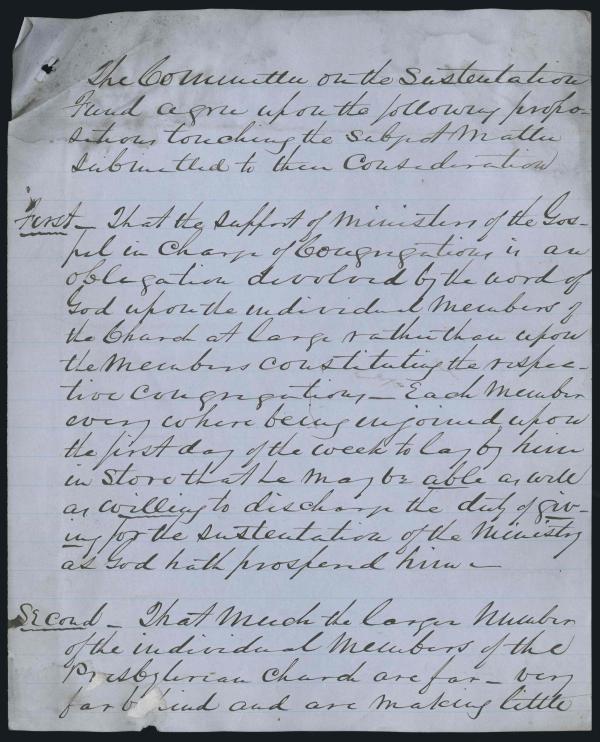 The Committee on the Sustentation
Fund agree upon the following propo-
sitions touching the Subject Matter
submitted to their Consideration
First – That the support of ministers of the Gos-
pel in Charge of Congregations is an
obligation devolved by the word of
God upon the individual members of
the Church at large rather than upon
the members constituting the respec-
tive Congregations – Each member
every where being enjoined upon
the first day of the week to lay by him
in Store that he may be able as well
as willing to discharge the duty of giv-
ing for the sustentation of the Ministry
as God hath prospered him –
Second – That much the larger Number
of the individual Members of the
Presbyterian Church are far – very
far behind and are making little